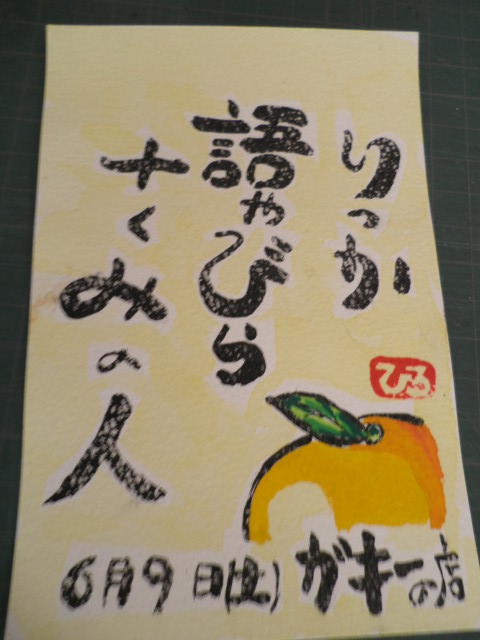 りっか
語やびら
さくみの人
ひろ
ガキーの店
6月9日(土)